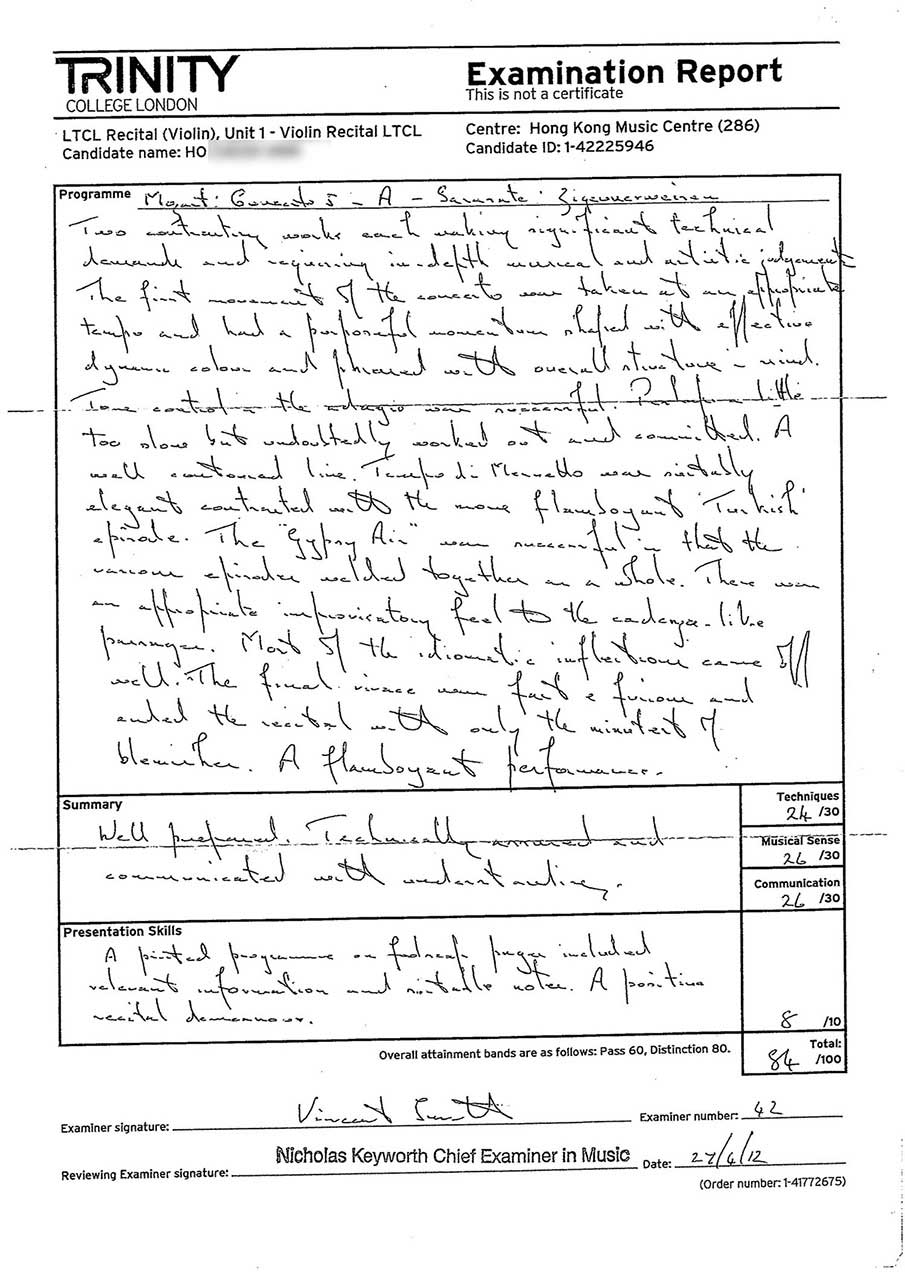 TRINITY
COLLEGE LONDON
Examination Report
This is not a certificate
LTCL Recital (Violin), Unit 1 - Violin Recital LTCL
Centre: Hong Kong Music Centre (286)
Candidate name: HO
Candidate ID: 1-42225946
Programme Mozart: Concerto 5 - A - Sarasate: Zigeunerweisen
Two contrasting works each making significant technical
demands and requiring in-depth musical and artistic judgement.
The first movement of the concerto was taken at an appropriate
tempo and had a purposeful momentum shaped with effective
dynamic colour and phrased with overall structure in mind.
Tone control in the adagio was successful. Perhaps a little
too slow but undoubtedly worked out and committed. A
well contoured line. Tempo di Menuetto was suitably
elegant contrasted with the more flamboyant 'Turkish'
episode. The "Gypsy Air" was successful in that the
various episodes welded together as a whole. There was
an appropriate improvisatory feel to the cadenza-like
passages. Most of the idiomatic inflections came off
well. The final vivace was fast & furious and
ended the recital with only the minutest of
blemishes. A flamboyant performance.
Summary
Well prepared. Technically assured and
communicated with understanding.
Techniques
24 /30
Musical Sense
26 /30
Communication
26 /30
Presentation Skills
A printed programme on foolscap paper included
relevant information and suitable notes. A positive
recital demeanour.
8 /10
Overall attainment bands are as follows: Pass 60, Distinction 80.
Total:
84 /100
Examiner signature: Vincent Smith
Examiner number: 42
Reviewing Examiner signature: Nicholas Keyworth Chief Examiner in Music
Date: 27/4/12
(Order number: 1-41772675)